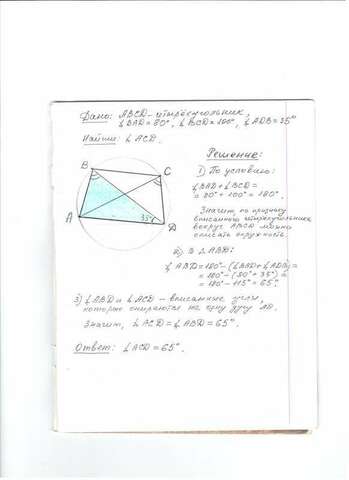 Дано: ABCD - четырёхугольник,
∠BAD = 80°, ∠BCD = 100°, ∠ADB = 35°
Найти: ∠ACD.
Решение:
B
C
A
35°
D
1) По условию:
∠BAD + ∠BCD =
= 80° + 100° = 180°.
Значит, по признаку
вписанного четырёхугольника
вокруг ABCD можно
описать окружность.
2) В △ ABD:
∠ABD = 180° - (∠BAD + ∠ADB) =
= 180° - (80° + 35°) =
= 180° - 115° = 65°.
3) ∠ABD и ∠ACD - вписанные углы,
которые опираются на одну дугу AD.
Значит, ∠ACD = ∠ABD = 65°.
Ответ: ∠ACD = 65°.